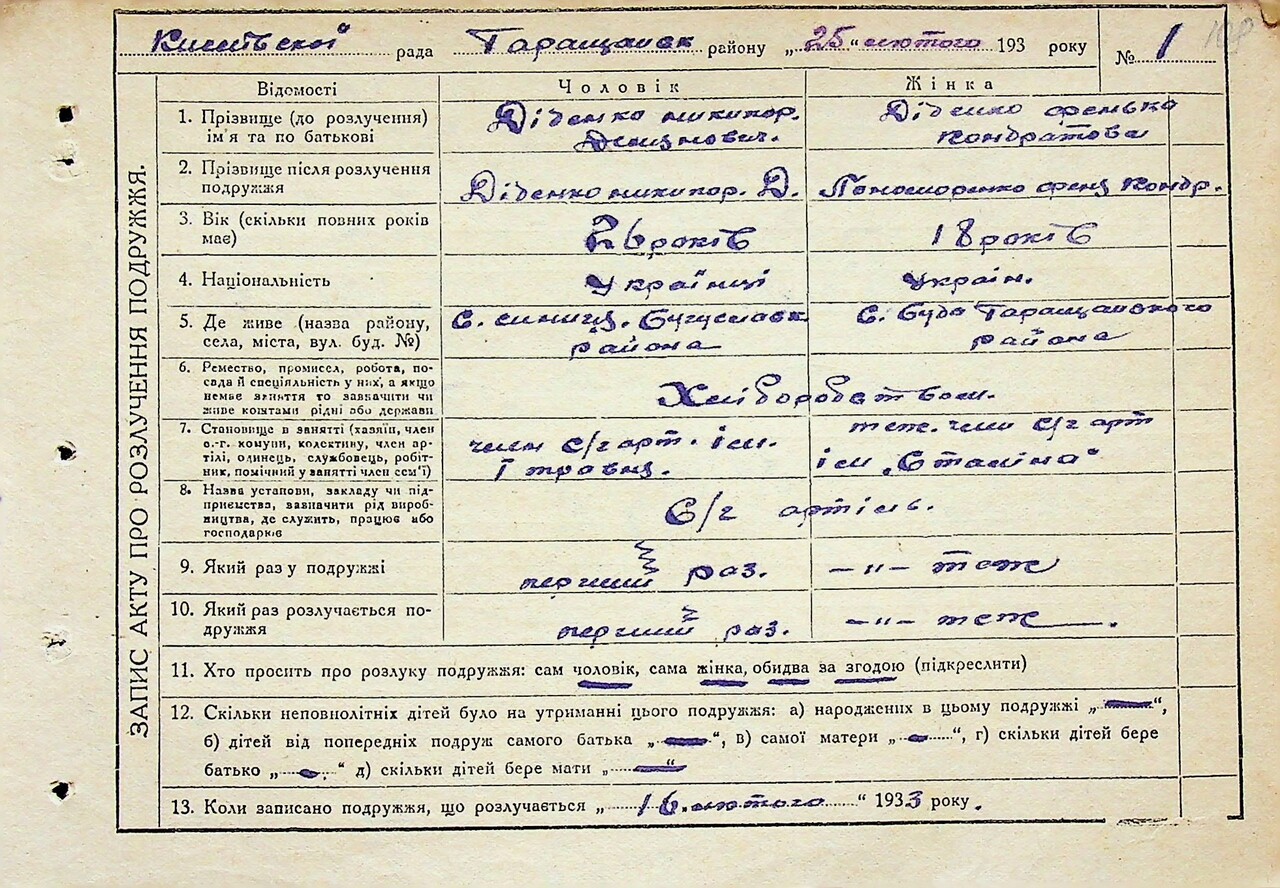 рада Таращанск району „25“ лютого 193 року
№ 1
108
ЗАПИС АКТУ ПРО РОЗЛУЧЕННЯ ПОДРУЖЖЯ.
Відомості Чоловік Жінка
1. Прізвище (до розлучення) ім'я та по батькові
Діденко никипор.
Діденко френька
Кондратова
2. Прізвище після розлучення
подружжя
Діденко никипор. Д. Кондр.
3. Вік (скільки повних років
має)
26 років 18 років
4. Національність
Українці Україн.
5. Де живе (назва району,
села, міста, вул. буд. №)
с. синиця. Богуславк
района
с. Буда Таращанского
района
6. Ремество, промисел, робота, по-
сада й спеціяльність у них, а якщо
немає заняття то зазначити чи
живе коштами рідні або держави
Хліборобством.
7. Становище в занятті (хазяїн, член
с.-г. комуни, колективу, член ар-
тілі, одинець, службовець, робіт-
ник, помічний у занятті член сем'ї)
член с/г арт. ім.
1 травня.
теж. член с/г арт
ім „Сталіна“
8. Назва установи, закладу чи під-
приємства, зазначити рід вироб-
ництва, де служить, працює або
господарків
С/г артіль.
9. Який раз у подружжі
перший раз. —„— теж
10. Який раз розлучається по-
дружжя
перший раз. —„— теж.
11. Хто просить про розлуку подружжя: сам чоловік, сама жінка, обидва за згодою (підкреслити)
12. Скільки неповнолітніх дітей було на утриманні цього подружжя: а) народжених в цьому подружжі „—“,
б) дітей від попередніх подруж самого батька „—“, в) самої матери „—“, г) скільки дітей бере
батько „—“ д) скільки дітей бере мати „—“
13. Коли записано подружжя, що розлучається „16 лютого“ 1933 року.